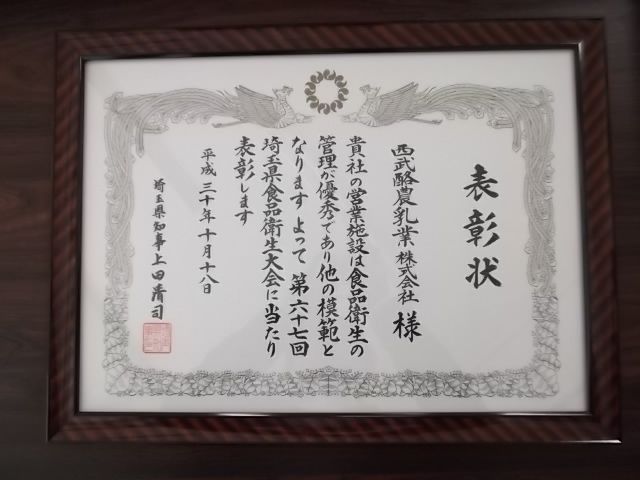 表彰状
西武酪農乳業株式会社 様
貴社の営業施設は食品衛生の
管理が優秀であり他の模範と
なります よって 第六十七回
埼玉県食品衛生大会に当たり
表彰します
平成三十年十月十八日
埼玉県知事上田清司